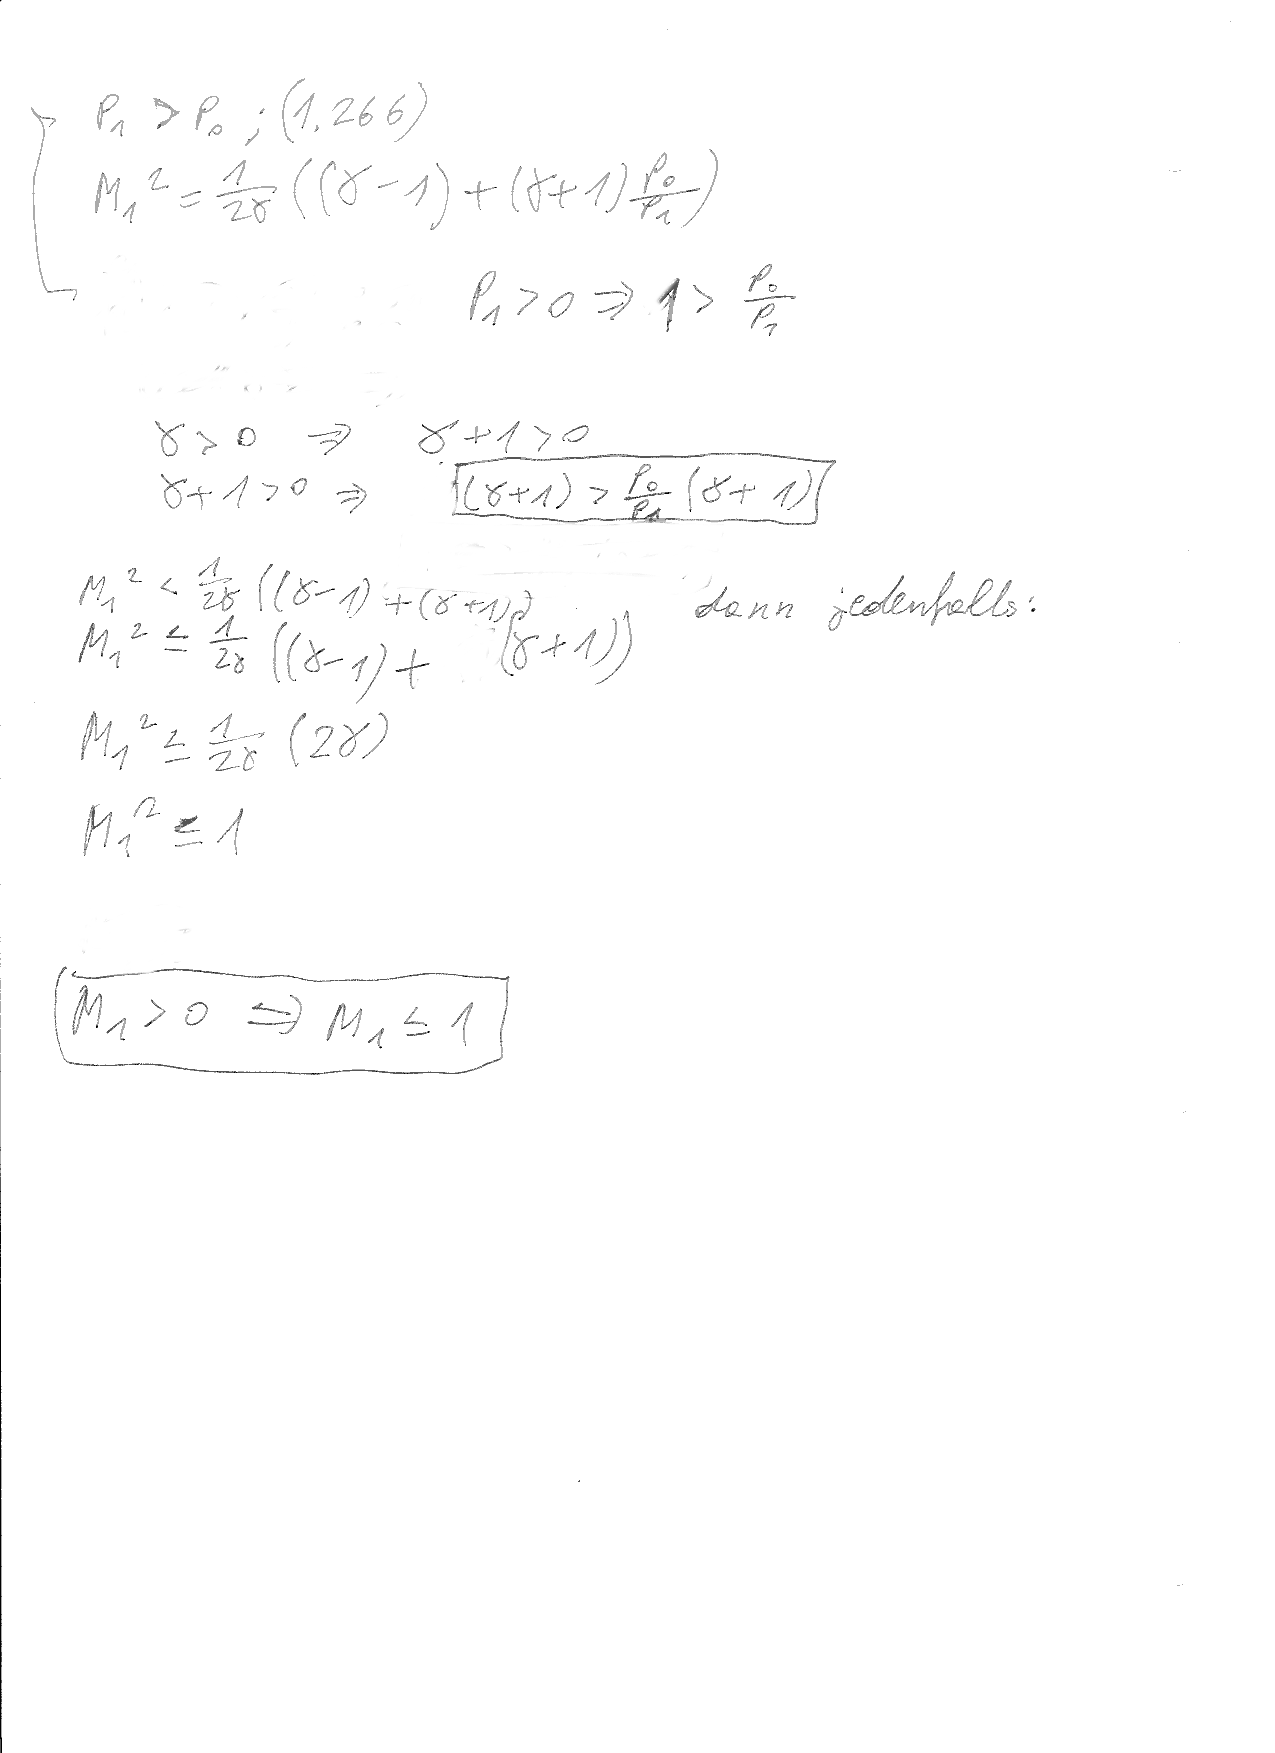 P₁ > P₀ ; (1.266)
M₁² = 1/2γ ((γ-1) + (γ+1) P₀/P₁)
P₁ > 0 ⇒ 1 > P₀/P₁
γ > 0 ⇒ γ+1 > 0
γ+1 > 0 ⇒ (γ+1) > P₀/P₁ (γ+1)
M₁² < 1/2γ ((γ-1) + (γ+1)) dann jedenfalls:
M₁² ≤ 1/2γ ((γ-1) + (γ+1))
M₁² ≤ 1/2γ (2γ)
M₁² ≤ 1
M₁ > 0 ⇒ M₁ ≤ 1